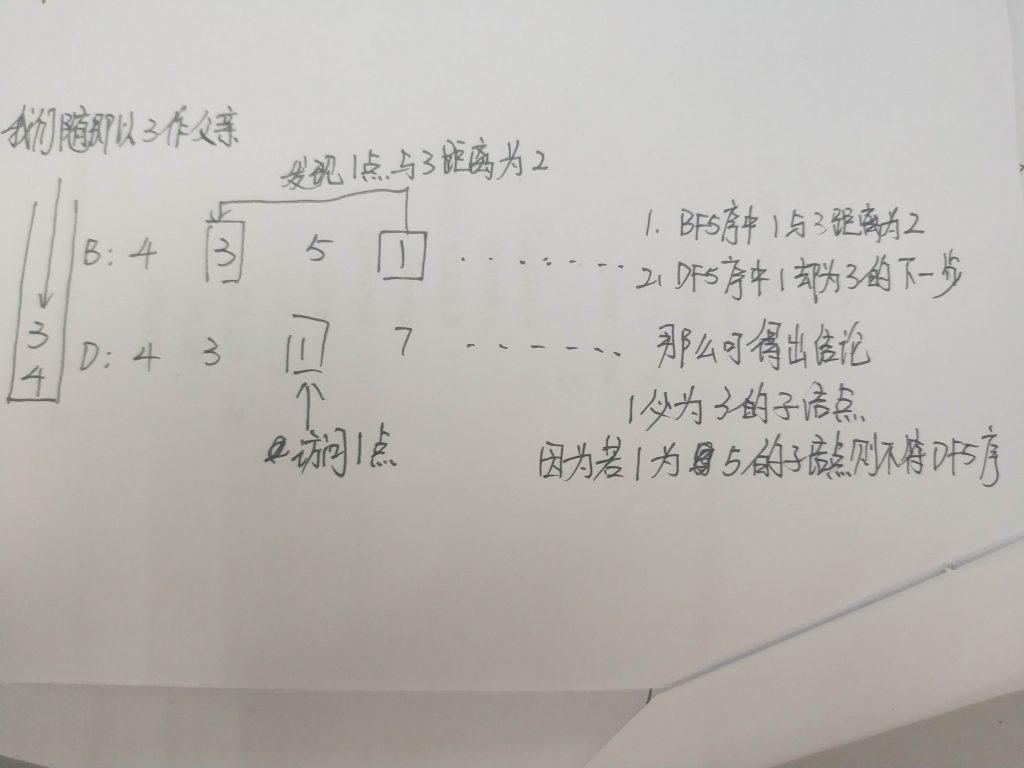 我们随即以3作父亲
发现1点与3距离为2
B: 4 3 5 1 . . . . . . .
D: 4 3 1 7 . . . . . . .
3
4
访问1点
1. BFS序中1与3距离为2
2. DFS序中1却为3的下一步
那么可得出结论
1必为3的子结点
因为若1为5的子结点则不符DFS序